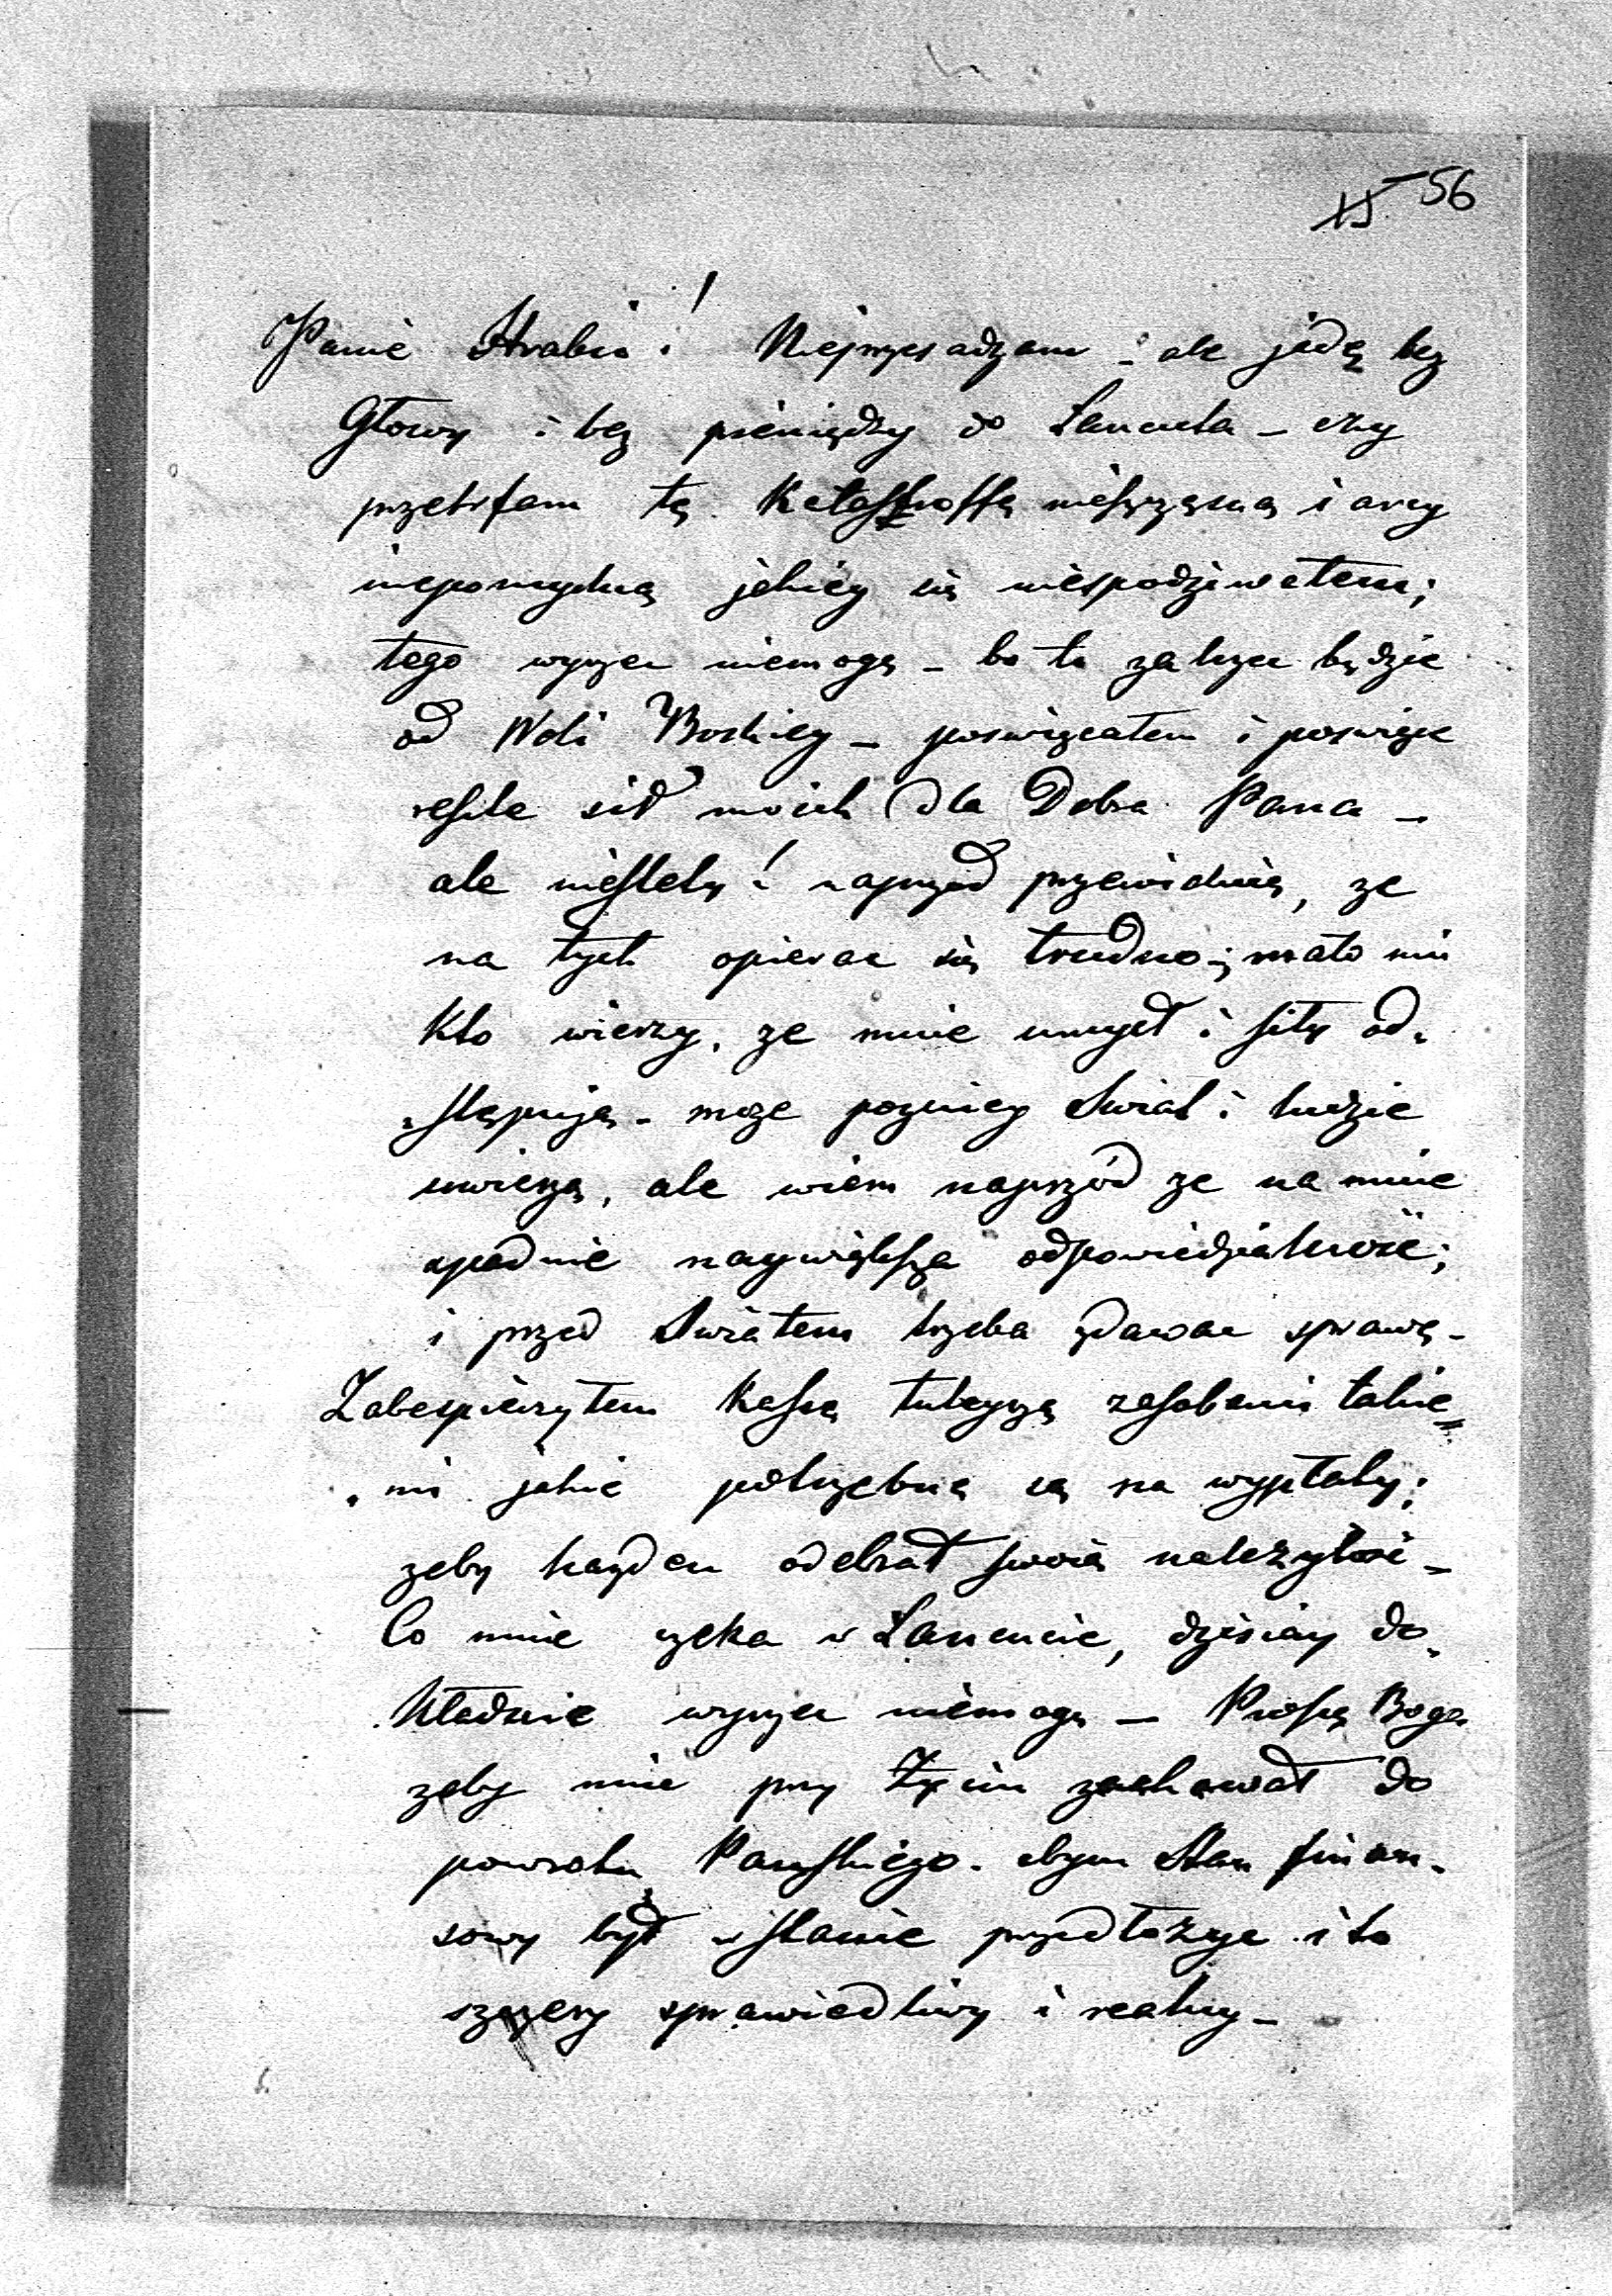 56
Panie Hrabio! Nieprzesadzam – ale jadę bez
Głowy i bez pieniędzy do Łancuta – czy
przetrfam tę Katastroffę nieszczęsną i arcy
niepomyslną jakiey się niespodziewałem;
tego wyrzec niemogę – bo to zalezec będzie
od Woli Boskiey – poswięcałem i poswięce
resztę sił moich dla Dobra Pana –
ale niestety! naprzod przewiduię, ze
na tych opierac się trudno; mało mi
kto wierzy, ze mnie umysł i siły od„
„stępują – moze pozniey Swiat i ludzie
uwierzą, ale wiem naprzód ze na mnie
spadnie naywiększa odpowiedzialność;
i przed Swiatem trzeba zdawac sprawę –
Zabespieczyłem Kassę tuteyszą zasobami takie„
„mi jakie potrzebne są na wypłaty;
zeby kazden odebrał swoią nalezytość –
Co mnie czeka w Łancucie, dzisiay do„
„kładnie wyrzec niemogę – Proszę Boga
zeby mnie przy Życiu zachował do
powrotu Pańskiego. abym Stan finan„
sowy był w stanie przedłożyc i to
szczery sprawiedliwy i realny –